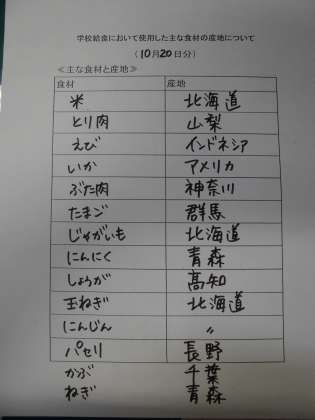 学校給食において使用した主な食材の産地について
(10月20日分)
≪主な食材と産地≫
食材 産地
米 北海道
とり肉 山梨
えび インドネシア
いか アメリカ
ぶた肉 神奈川
たまご 群馬
じゃがいも 北海道
にんにく 青森
しょうが 高知
玉ねぎ 北海道
にんじん 〃
パセリ 長野
かぶ 千葉
ねぎ 青森